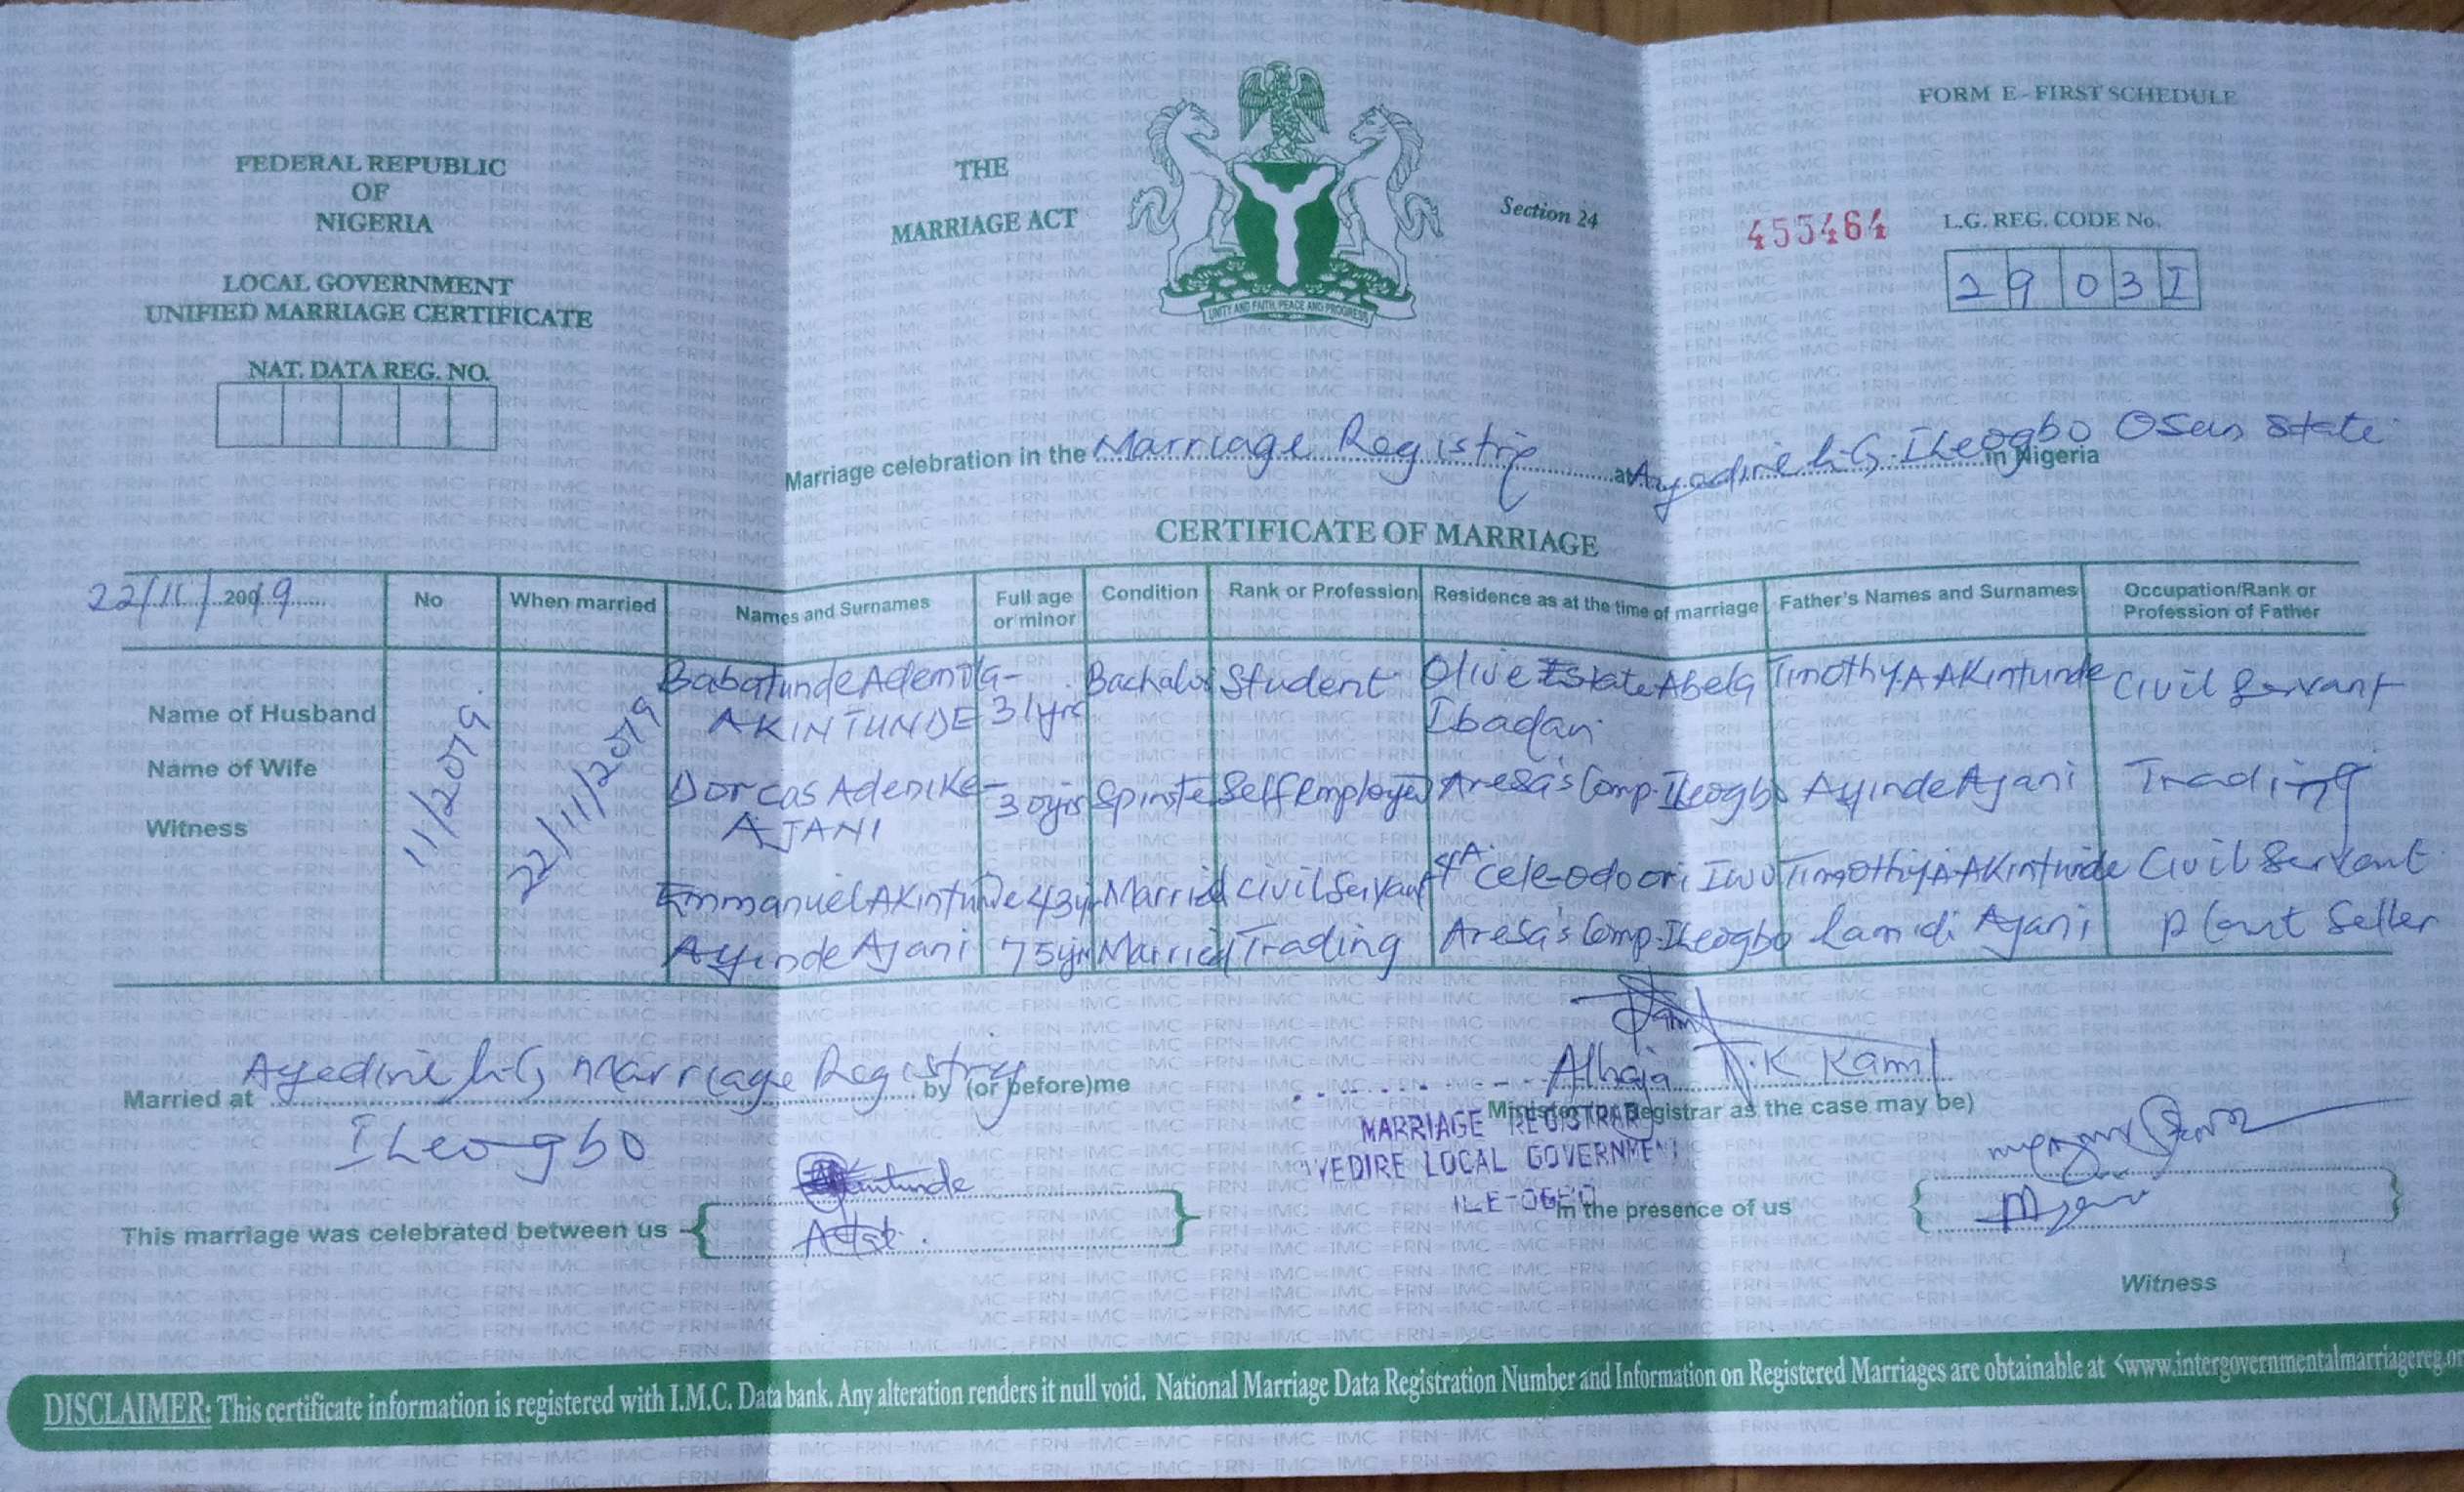 FORM E - FIRST SCHEDULE
FEDERAL REPUBLIC
OF
NIGERIA
LOCAL GOVERNMENT
UNIFIED MARRIAGE CERTIFICATE
NAT. DATA REG. NO.
THE
MARRIAGE ACT
UNITY AND FAITH, PEACE AND PROGRESS
Section 24
455464
L.G. REG. CODE No.
2 9 0 3 I
Marriage celebration in the Marriage Registry at Ayedire L.G. Ileogbo Osun State in Nigeria
CERTIFICATE OF MARRIAGE
22/11/2019 No When married Names and Surnames Full age or minor Condition Rank or Profession Residence as at the time of marriage Father's Names and Surnames Occupation/Rank or Profession of Father
Name of Husband Babatunde Ademola- Bachalor Student Olive Estate Abela Timothy A AKintunde Civil Servant
AKINTUNDE 31yrs Ibadan
Name of Wife 11/2019 22/11/2019 Dorcas Adenike- 30yrs Spinster Self Employed Aresa's Comp. Ileogbo Ayinde Ajani Trading
AJANI
Witness
Emmanuel AKintunde 43yrs Married Civil Servant Cele-odoori Iwo Timothy A. AKintunde Civil Servant
Ayinde Ajani 75yrs Married Trading Aresa's Comp. Ileogbo Lamidi Ajani Plant Seller
Married at Ayedire L.G, Marriage Registry by (or before)me Alhaja F.K Kamil
Ileogbo
Minister (or Registrar as the case may be)
MARRIAGE REGISTRAR
AYEDIRE LOCAL GOVERNMENT
ILE-OGBO
This marriage was celebrated between us
In the presence of us
Witness
DISCLAIMER: This certificate information is registered with I.M.C. Data bank. Any alteration renders it null void. National Marriage Data Registration Number and Information on Registered Marriages are obtainable at <www.intergovernmentalmarriagereg.or